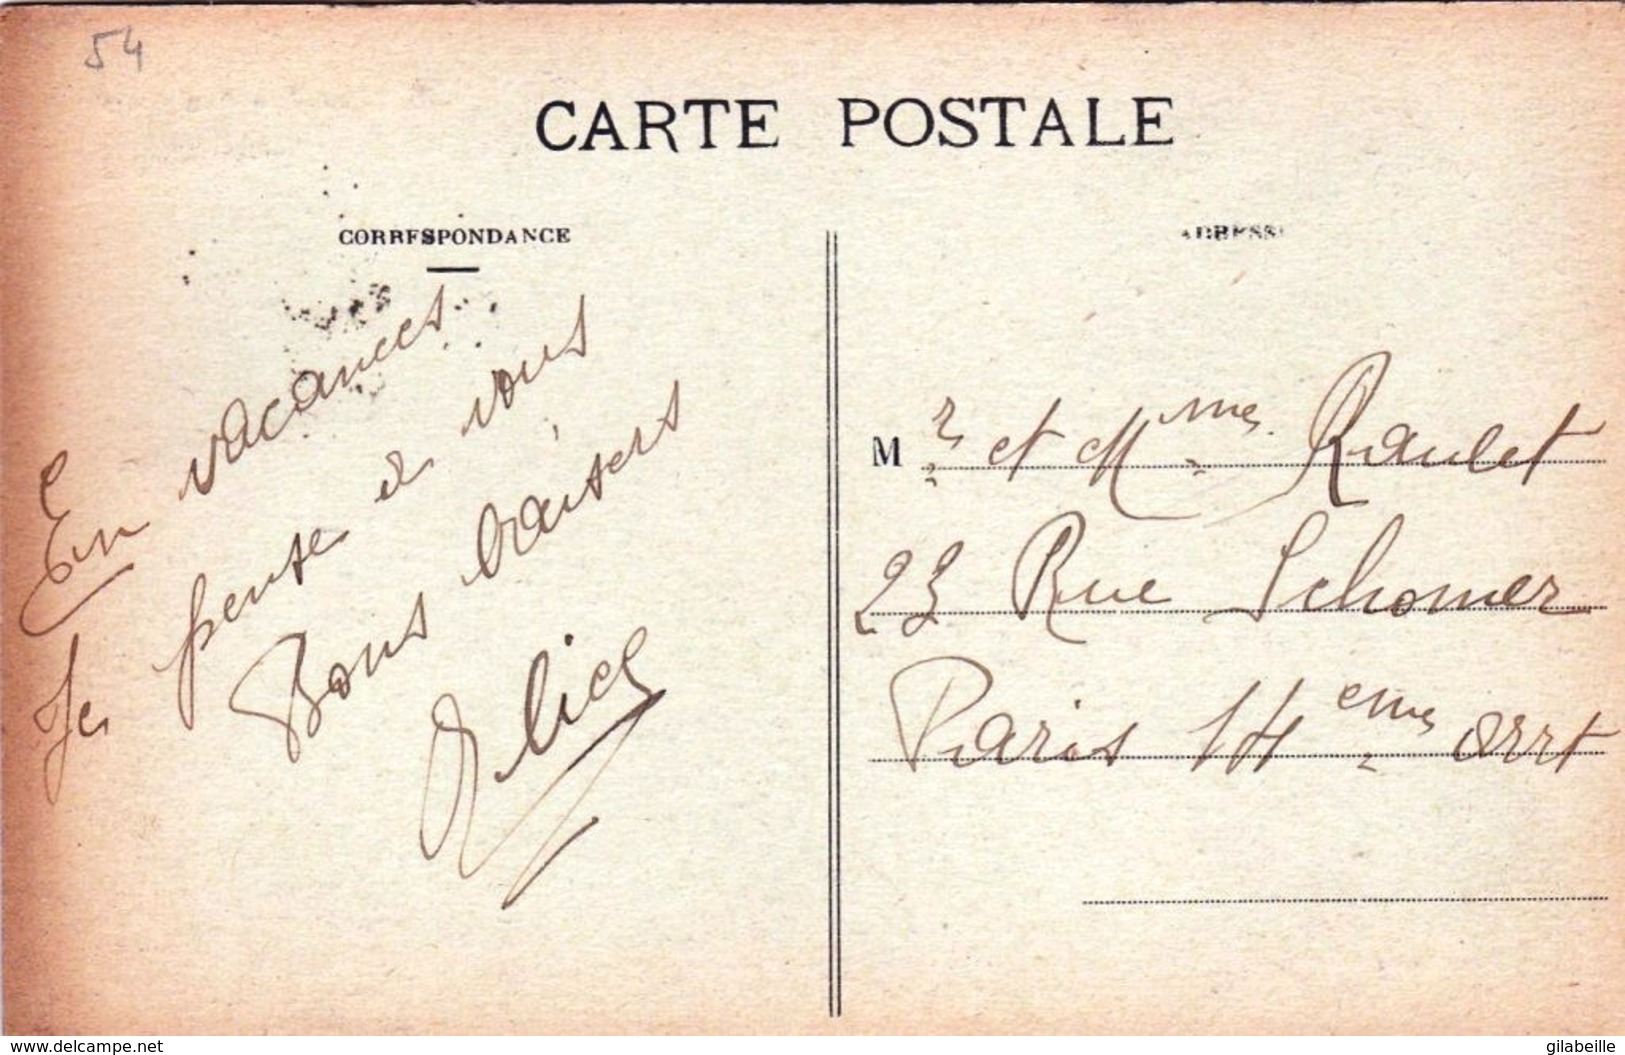 54
CARTE POSTALE
CORRESPONDANCE
ADRESSE
En vacances
Je pense à vous
Bons baisers
Alice
Mr et Mme Raulet
23 Rue Schomer
Paris 14eme arrt
www.delcampe.net
gilabeille